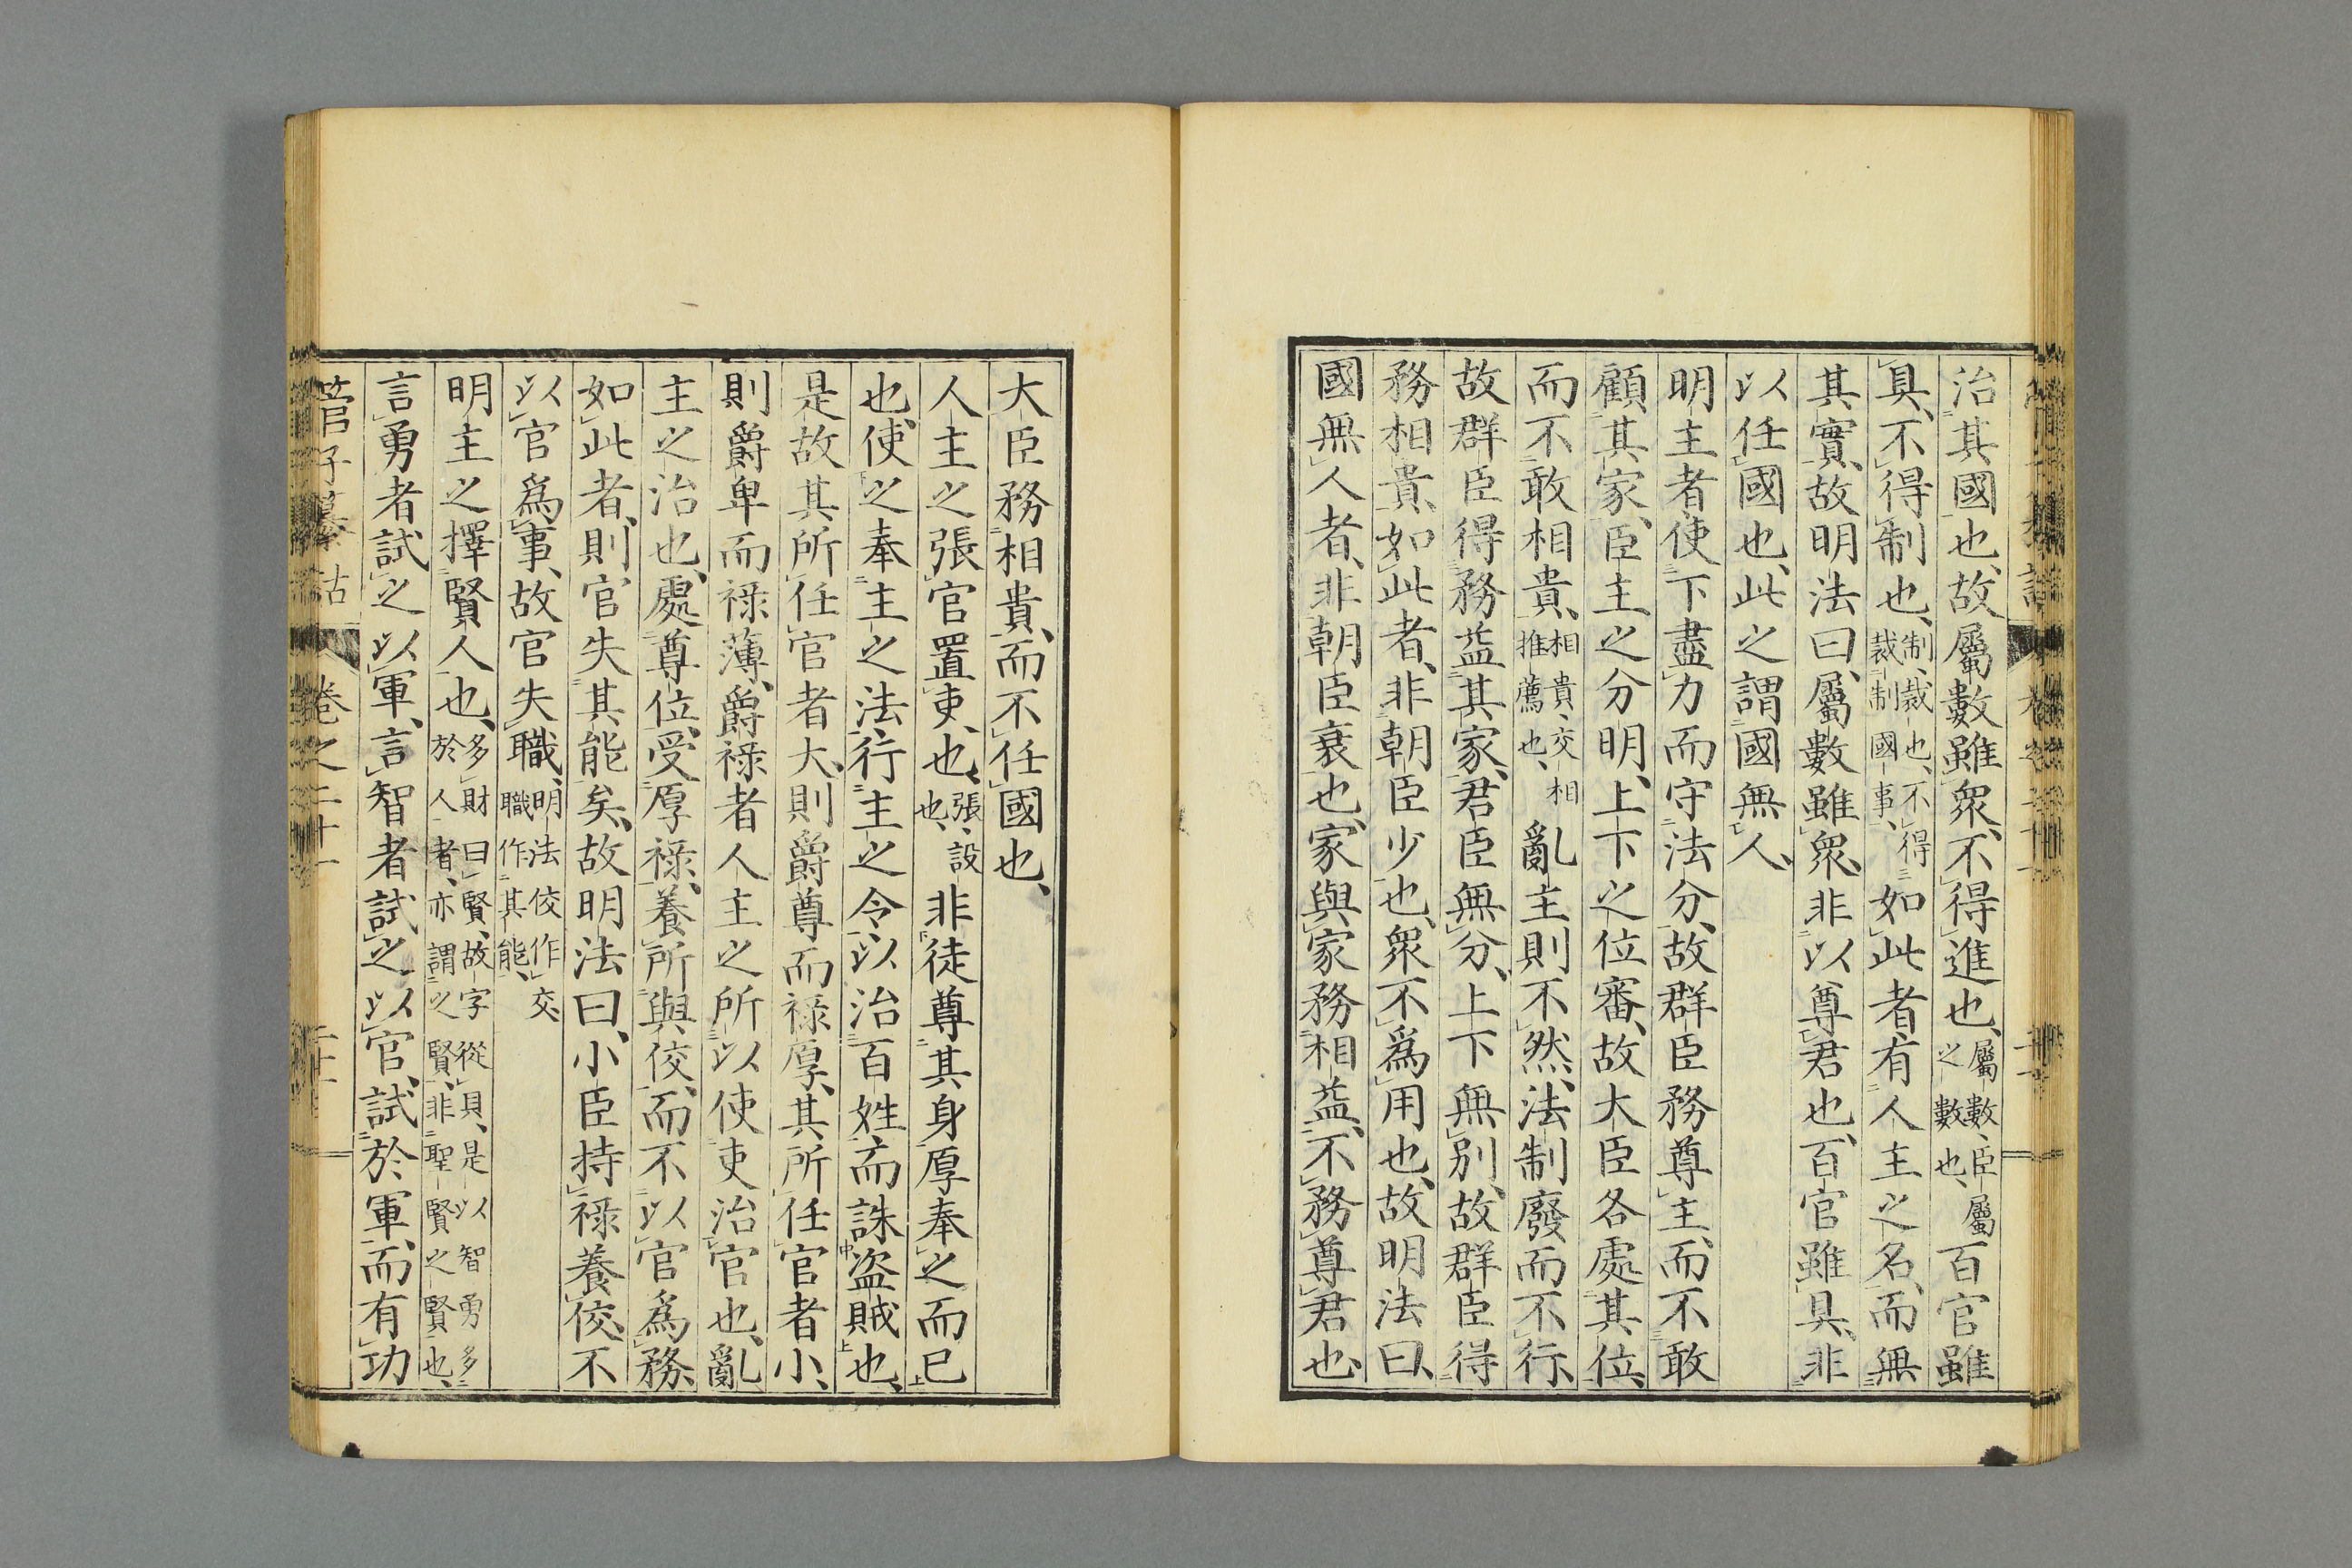 治其國也、故屬數雖衆、不得進也、屬數、臣屬之數也、百官雖
具、不得制也、制、裁也、不得裁制國事、如此者、有人主之名、而無
其實、故明法曰、屬數雖衆、非以尊君也、百官雖具、非
以任國也、此之謂國無人、
明主者、使下盡力而守法分、故群臣務尊主、而不敢
顧其家、臣主之分明、上下之位審、故大臣各處其位、
而不敢相貴、相貴、交相推薦也、亂主則不然、法制廢而不行、
故群臣得務益其家、君臣無分、上下無別、故群臣得
務相貴、如此者、非朝臣少也、衆不爲用也、故明法曰、
國無人者、非朝臣衰也、家與家務相益、不務尊君也、
大臣務相貴、而不任國也、
人主之張官置吏也、張、設也、非徒尊其身厚奉之而已
也、使之奉主之法、行主之令、以治百姓、而誅盜賊也、
是故其所任官者大、則爵尊而祿厚、其所任官者小、
則爵卑而祿薄、爵祿者人主之所以使吏治官也、亂
主之治也、處尊位、受厚祿、養所與佼、而不以官爲務、
如此者、則官失其能矣、故明法曰、小臣持祿養佼、不
以官爲事、故官失職、明法佼作交、職作其能、
明主之擇賢人也、多財曰賢、故字從貝、是以智勇多於人者、亦謂之賢、非聖賢之賢也、
言勇者試之以軍、言智者試之以官、試於軍、而有功
管子纂詁 卷之二十一 二十一